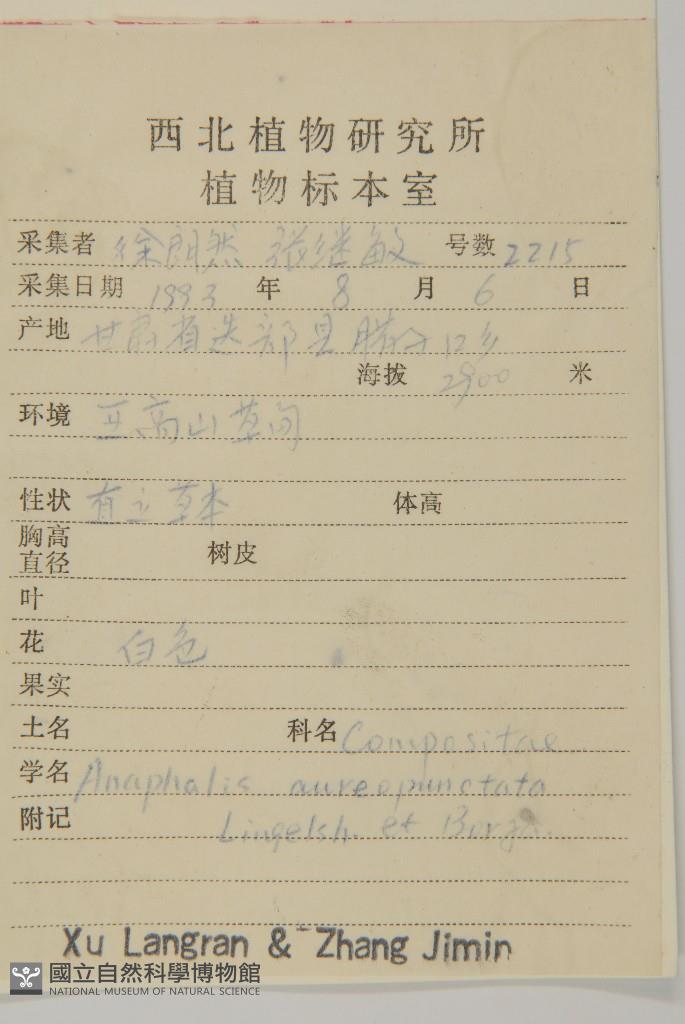 西北植物研究所
植物标本室
采集者 徐朗然 张继敏 号数 2215
采集日期 1993 年 8 月 6 日
产地 甘肃省迭部县腊子口乡
海拔 2900 米
环境 亚高山草甸
性状 直立草本 体高
胸高直径 树皮
叶
花 白色
果实
土名 科名 Compositae
学名 Anaphalis aureopunctata
附记 Lingelsh. et Borza.
Xu Langran & Zhang Jimin
國立自然科學博物館
NATIONAL MUSEUM OF NATURAL SCIENCE